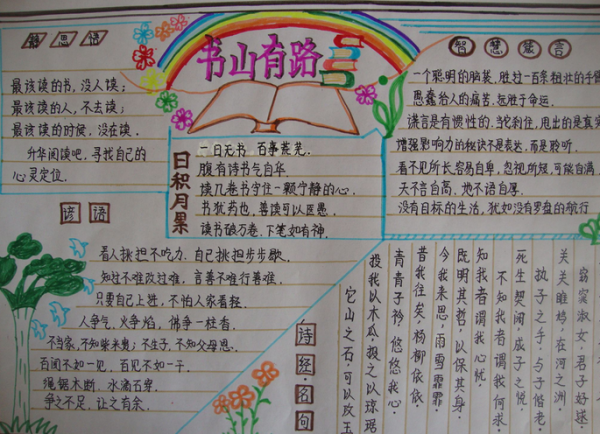 书山有路
静思语
最该读的书，没人读；
最该读的人，不去读；
最该读的时候，没在读。
升华阅读吧，寻找自己的
心灵定位。
日积月累
一日无书 百事荒芜.
腹有诗书气自华.
读几卷书守住一颗宁静的心.
书犹药也，善读可以医愚.
读书破万卷，下笔如有神.
智慧箴言
一个聪明的脑袋，胜过一百条粗壮的手臂
愚蠢给人的痛苦，远胜于命运.
谎言是有惯性的，当轮刹住，甩出的是真实
增强影响力的秘诀不是表达，而是聆听.
看不见所长容易自卑，忽视所短，可能自满
天不言自高、地不语自厚.
没有目标的生活，犹如没有罗盘的航行
谚语
看人挑担不吃力，自己挑担步步歇.
知过不难改过难，言善不难行善难.
只要自己上进，不怕人家看轻.
人争气，火争焰，佛争一柱香.
不当家，不知柴米贵；不生子，不知父母恩.
百闻不如一见，百见不如一干.
绳锯木断，水滴石穿.
争之不足，让之有余.
诗经·名句
窈窕淑女，君子好逑.
关关雎鸠，在河之洲.
执子之手，与子偕老.
死生契阔，成子之悦.
不知我者谓我何求
知我者谓我心忧.
既明其哲，以保其身.
今我来思，雨雪霏霏
昔我往矣，杨柳依依
青青子衿，悠悠我心
投我以木瓜，报之以琼琚
它山之石，可以攻玉